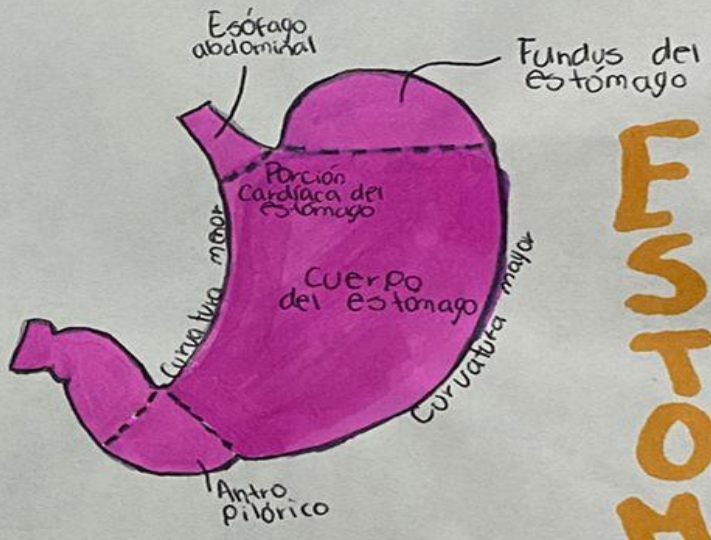 Esófago
abdominal
Fundus del
estómago
Porción
Cardíaca del
estómago
Curvatura menor
Cuerpo
del estómago
Curvatura mayor
Antro
Pilórico
ESTOM